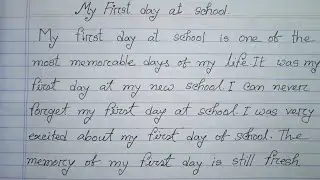 My First day at school.
My first day at school is one of the
most memorable days of my life. It was my
first day at my new school. I can never
forget my first day at school. I was very
excited about my first day of school. The
memory of my first day is still fresh